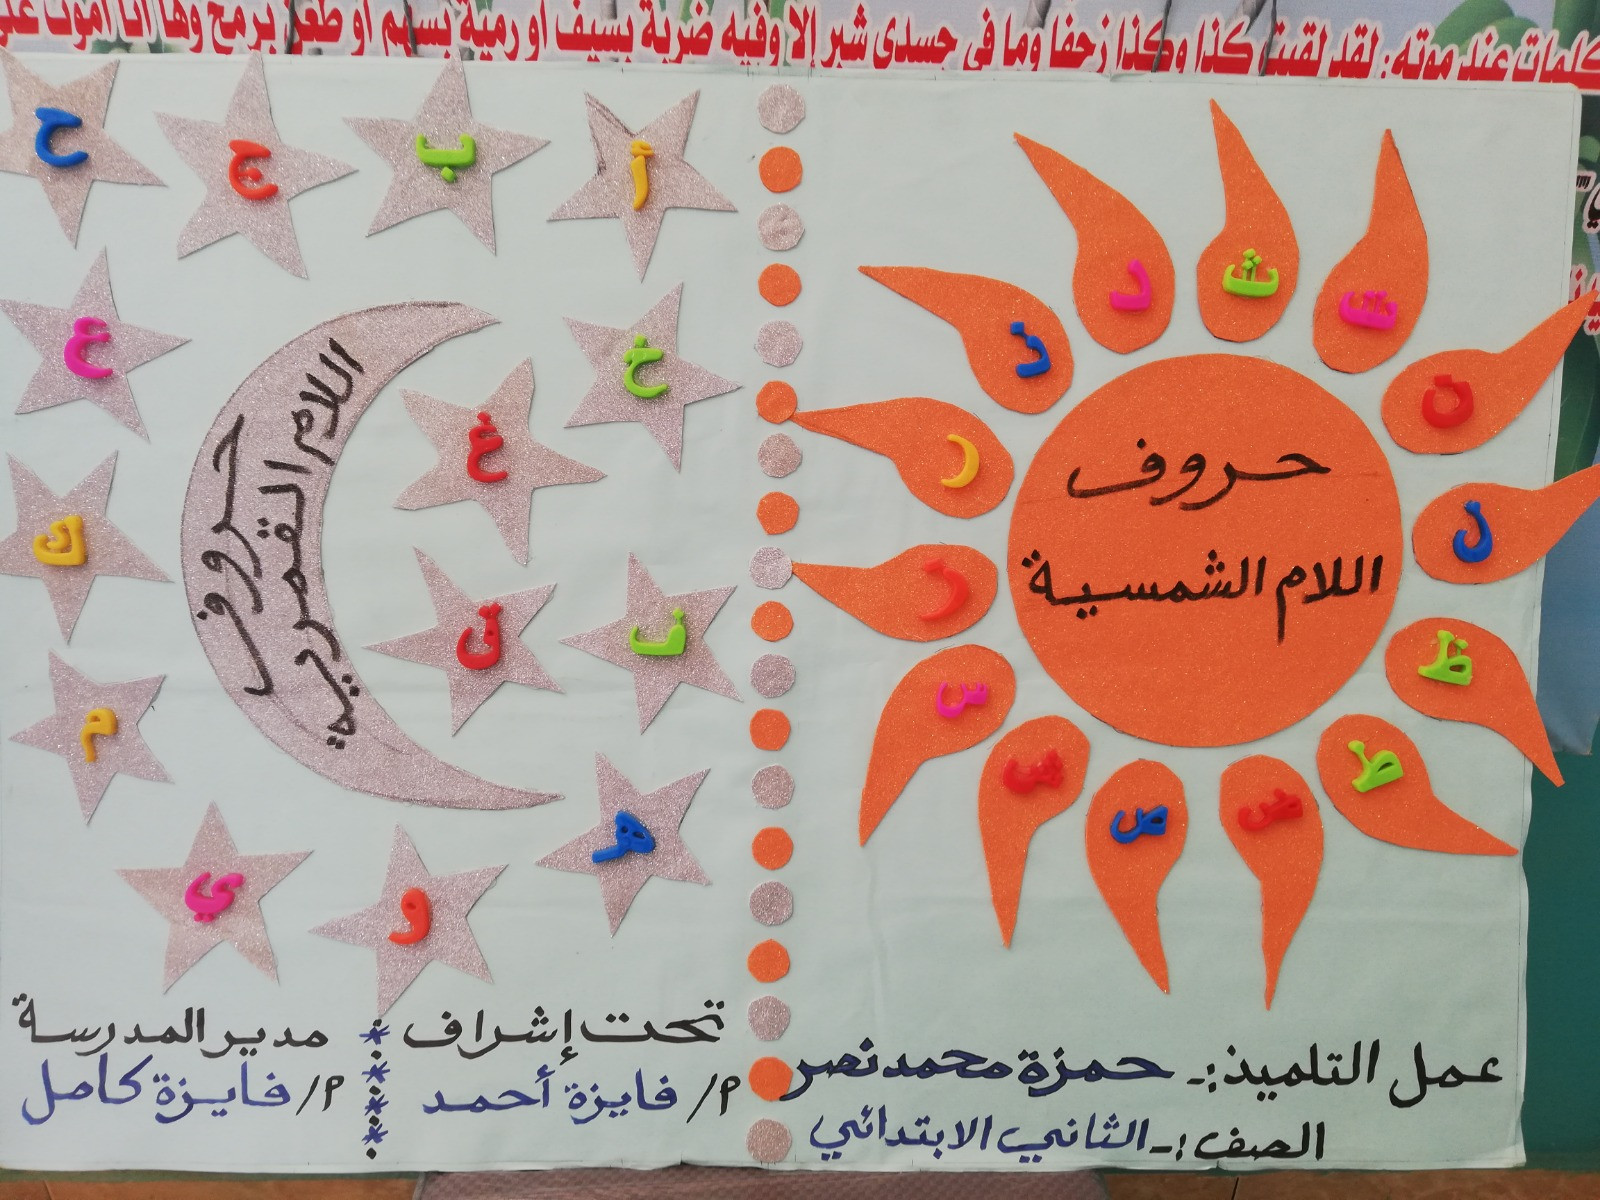 كلمات عند موته: لقد لقيت كذا وكذا زحفا وما في جسدي شبر إلا وفيه ضربة بسيف أو رمية بسهم أو طعن برمح وها أنا أموت
حروف
اللام الشمسية
ت
ث
د
ذ
ر
ز
س
ش
ص
ض
ط
ظ
ن
حروف
اللام القمرية
أ
ب
ج
ح
خ
ع
غ
ف
ق
ك
م
هـ
و
ي
عمل التلميذ:ـ حمزة محمد نصر
الصف:ـ الثاني الابتدائي
تحت إشراف
م/ فايزة أحمد
مدير المدرسة
م/ فايزة كامل